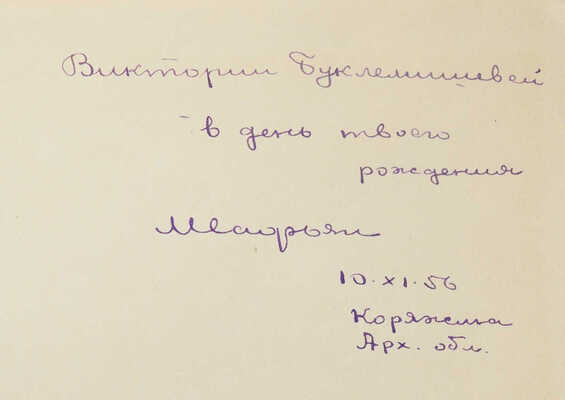 Виктории Буклемишевой
в день твоего
рождения
10.XI.56
Коряжма
Арх. обл.